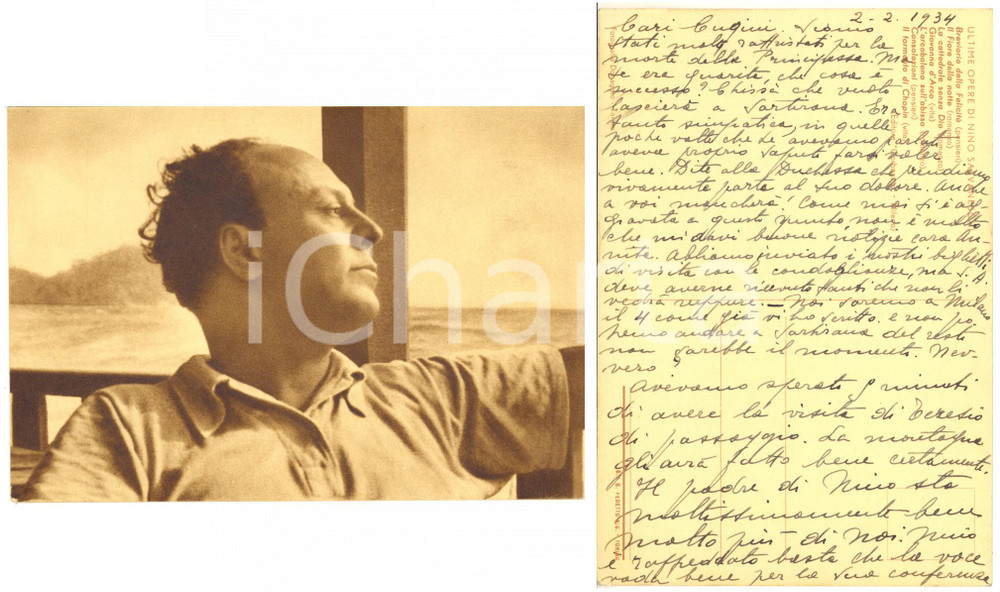 iCharta
2-2. 1934
Cari Cugini. Siamo
stati molto rattristati per la
morte della Principessa. Ma
se era guarita, che cosa è
successo? Chissà che vuoto
lascierà a Sartirana. Era
tanto simpatica, in quelle
poche volte che le avevamo parlato
aveva proprio saputo farsi voler
bene. Dite alla Duchessa che prendiamo
vivamente parte al suo dolore. Anche
a voi mancherà! Come mai si è ag-
gravata a questo punto, non è molto
che mi davi buone notizie cara An-
nita. Abbiamo inviato i nostri biglietti
di visita con le condoglianze, ma S. A.
deve averne ricevuto tanti che non li
vedrà neppure. — Noi saremo a Milano
il 4 come già vi ho scritto. e non po
tremo andare a Sartirana del resto
non sarebbe il momento. Nev-
vero?
Avevamo sperato 5 minuti
di avere la visita di Teresio
di passaggio. La montagna
gli avrà fatto bene certamente.
Il padre di Nino sta
moltissimamente bene
molto più di noi. Nino
è raffreddato basta che la voce
vada bene per la sua conferenza
ULTIME OPERE DI NINO
Breviario della Felicità (pensieri)
Il Fiore della notte (romanzo)
La cattedrale senza Dio
Giovanna d'Arco (vita)
L'arcobaleno sull'abisso
Consolazioni (pensieri)
Il tormento di Chopin (vita)